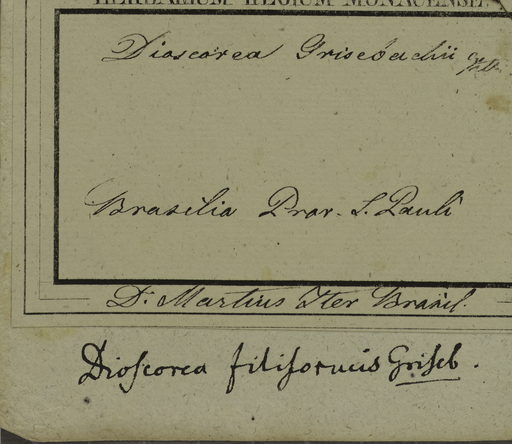 HERBARIUM REGIUM MONACENSE.
Dioscorea Grisebachii
Brasilia Prov. S. Pauli
D. Martius Iter Brasil.
Dioscorea filiformis Griseb.